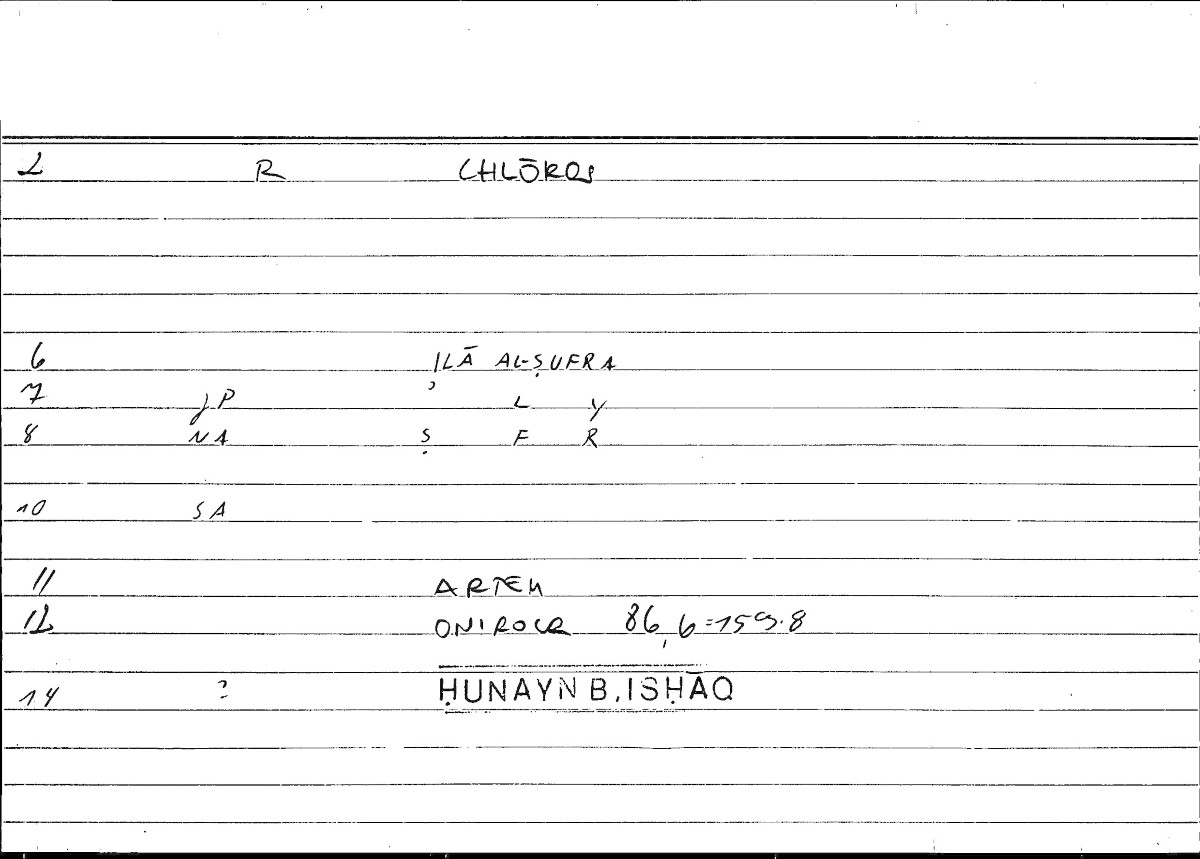 2 R CHLŌROS
6 ILĀ AL-ṢUFRA
7 JP ʾ L Y
8 NA Ṣ F R
10 SA
11 ARTEM
12 ONIROCR 86,6=159.8
14 ? ḤUNAYN B. ISḤĀQ